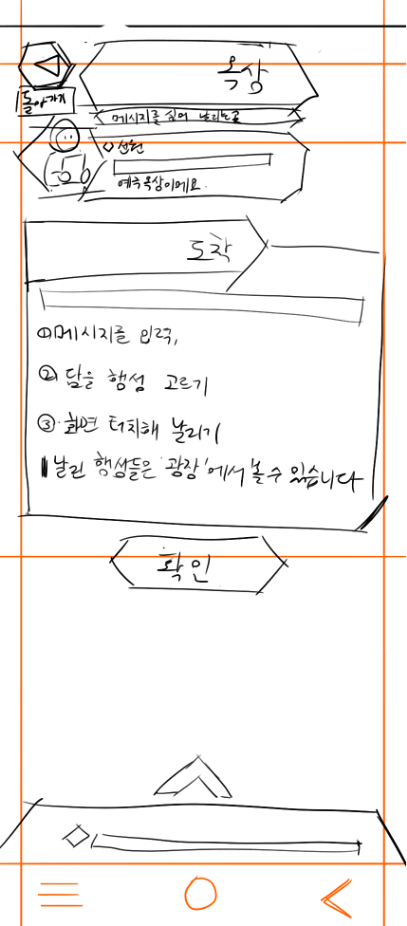 옥상
돌아가기
메시지를 실어 날리는곳
예측옥상이에요.
도착
①메시지를 입력,
② 담을 행성 고르기
③ 화면 터치해 날리기
날린 행성들은 '광장'에서 볼 수 있습니다
확인